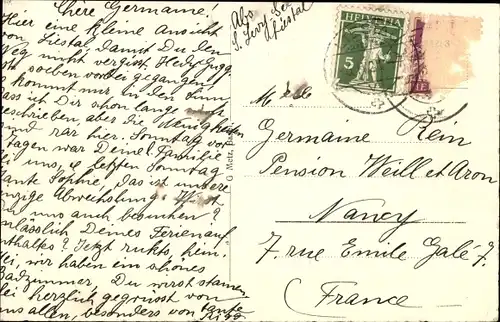 Chere Germaine!
Hier eine kleine Ansicht
von Liestal, damit Du den
Weg nicht vergisst. Hedy Gugg.
ist soeben vorbei gegangen.
Es kommt mir in den Sinn
dass ich Dir schon lange
geschrieben, aber die Neuigkeiten
sind rar hier. Sonntag vor
Tagen war Deine Familie
bei uns, letzten Sonntag
Tante Sophie, das ist unsere
einzige Abwechslung.
Du uns auch besuchen?
anlässlich Deines Ferienauf
enthaltes? Jetzt rukts hein.
Hei, wir haben ein schönes
Badzimmer, Du wirst staunen.
Sei herzlich gegrüsst von
uns allen, besonders von Tante
Abs.
S. Levy
Liestal
HELVETIA
5
G. Metz, Basel
Melle
Germaine Rein
Pension Weill et Aron
Nancy
7. rue Emile Galé 7.
France